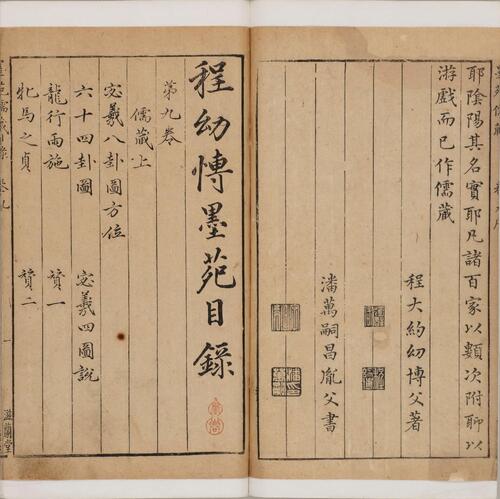 耶陰陽其名實耶凡諸百家以類次附聊以
游戲而已作儒藏
程大約幼博父著
潘萬嗣昌胤父書
程幼博墨苑目錄
第九卷
儒藏上
宓羲八卦圖方位
六十四卦圖 宓羲四圖說
龍行雨施 贊一
牝馬之貞 贊二
一
滋蘭堂